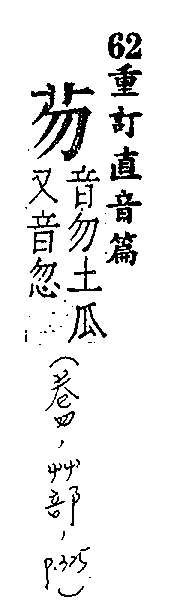 62重訂直音篇
芴
音勿土瓜
又音忽
(卷四,艸部,p.325)